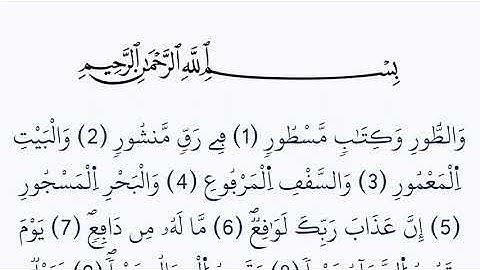 بِسْمِ اللَّهِ الرَّحْمَٰنِ الرَّحِيمِ
وَالطُّورِ وَكِتَٰبٖ مَّسْطُورٖ (1) فِے رَقّٖ مَّنشُورٖ (2) وَالْبَيْتِ
اِ۬لْمَعْمُورِ (3) وَالسَّقْفِ اِ۬لْمَرْفُوعِ (4) وَالْبَحْرِ اِ۬لْمَسْجُورِ
(5) إِنَّ عَذَابَ رَبِّكَ لَوَٰقِعٞ (6) مَّا لَهُۥ مِن دَافِعٖ (7) يَوْمَ